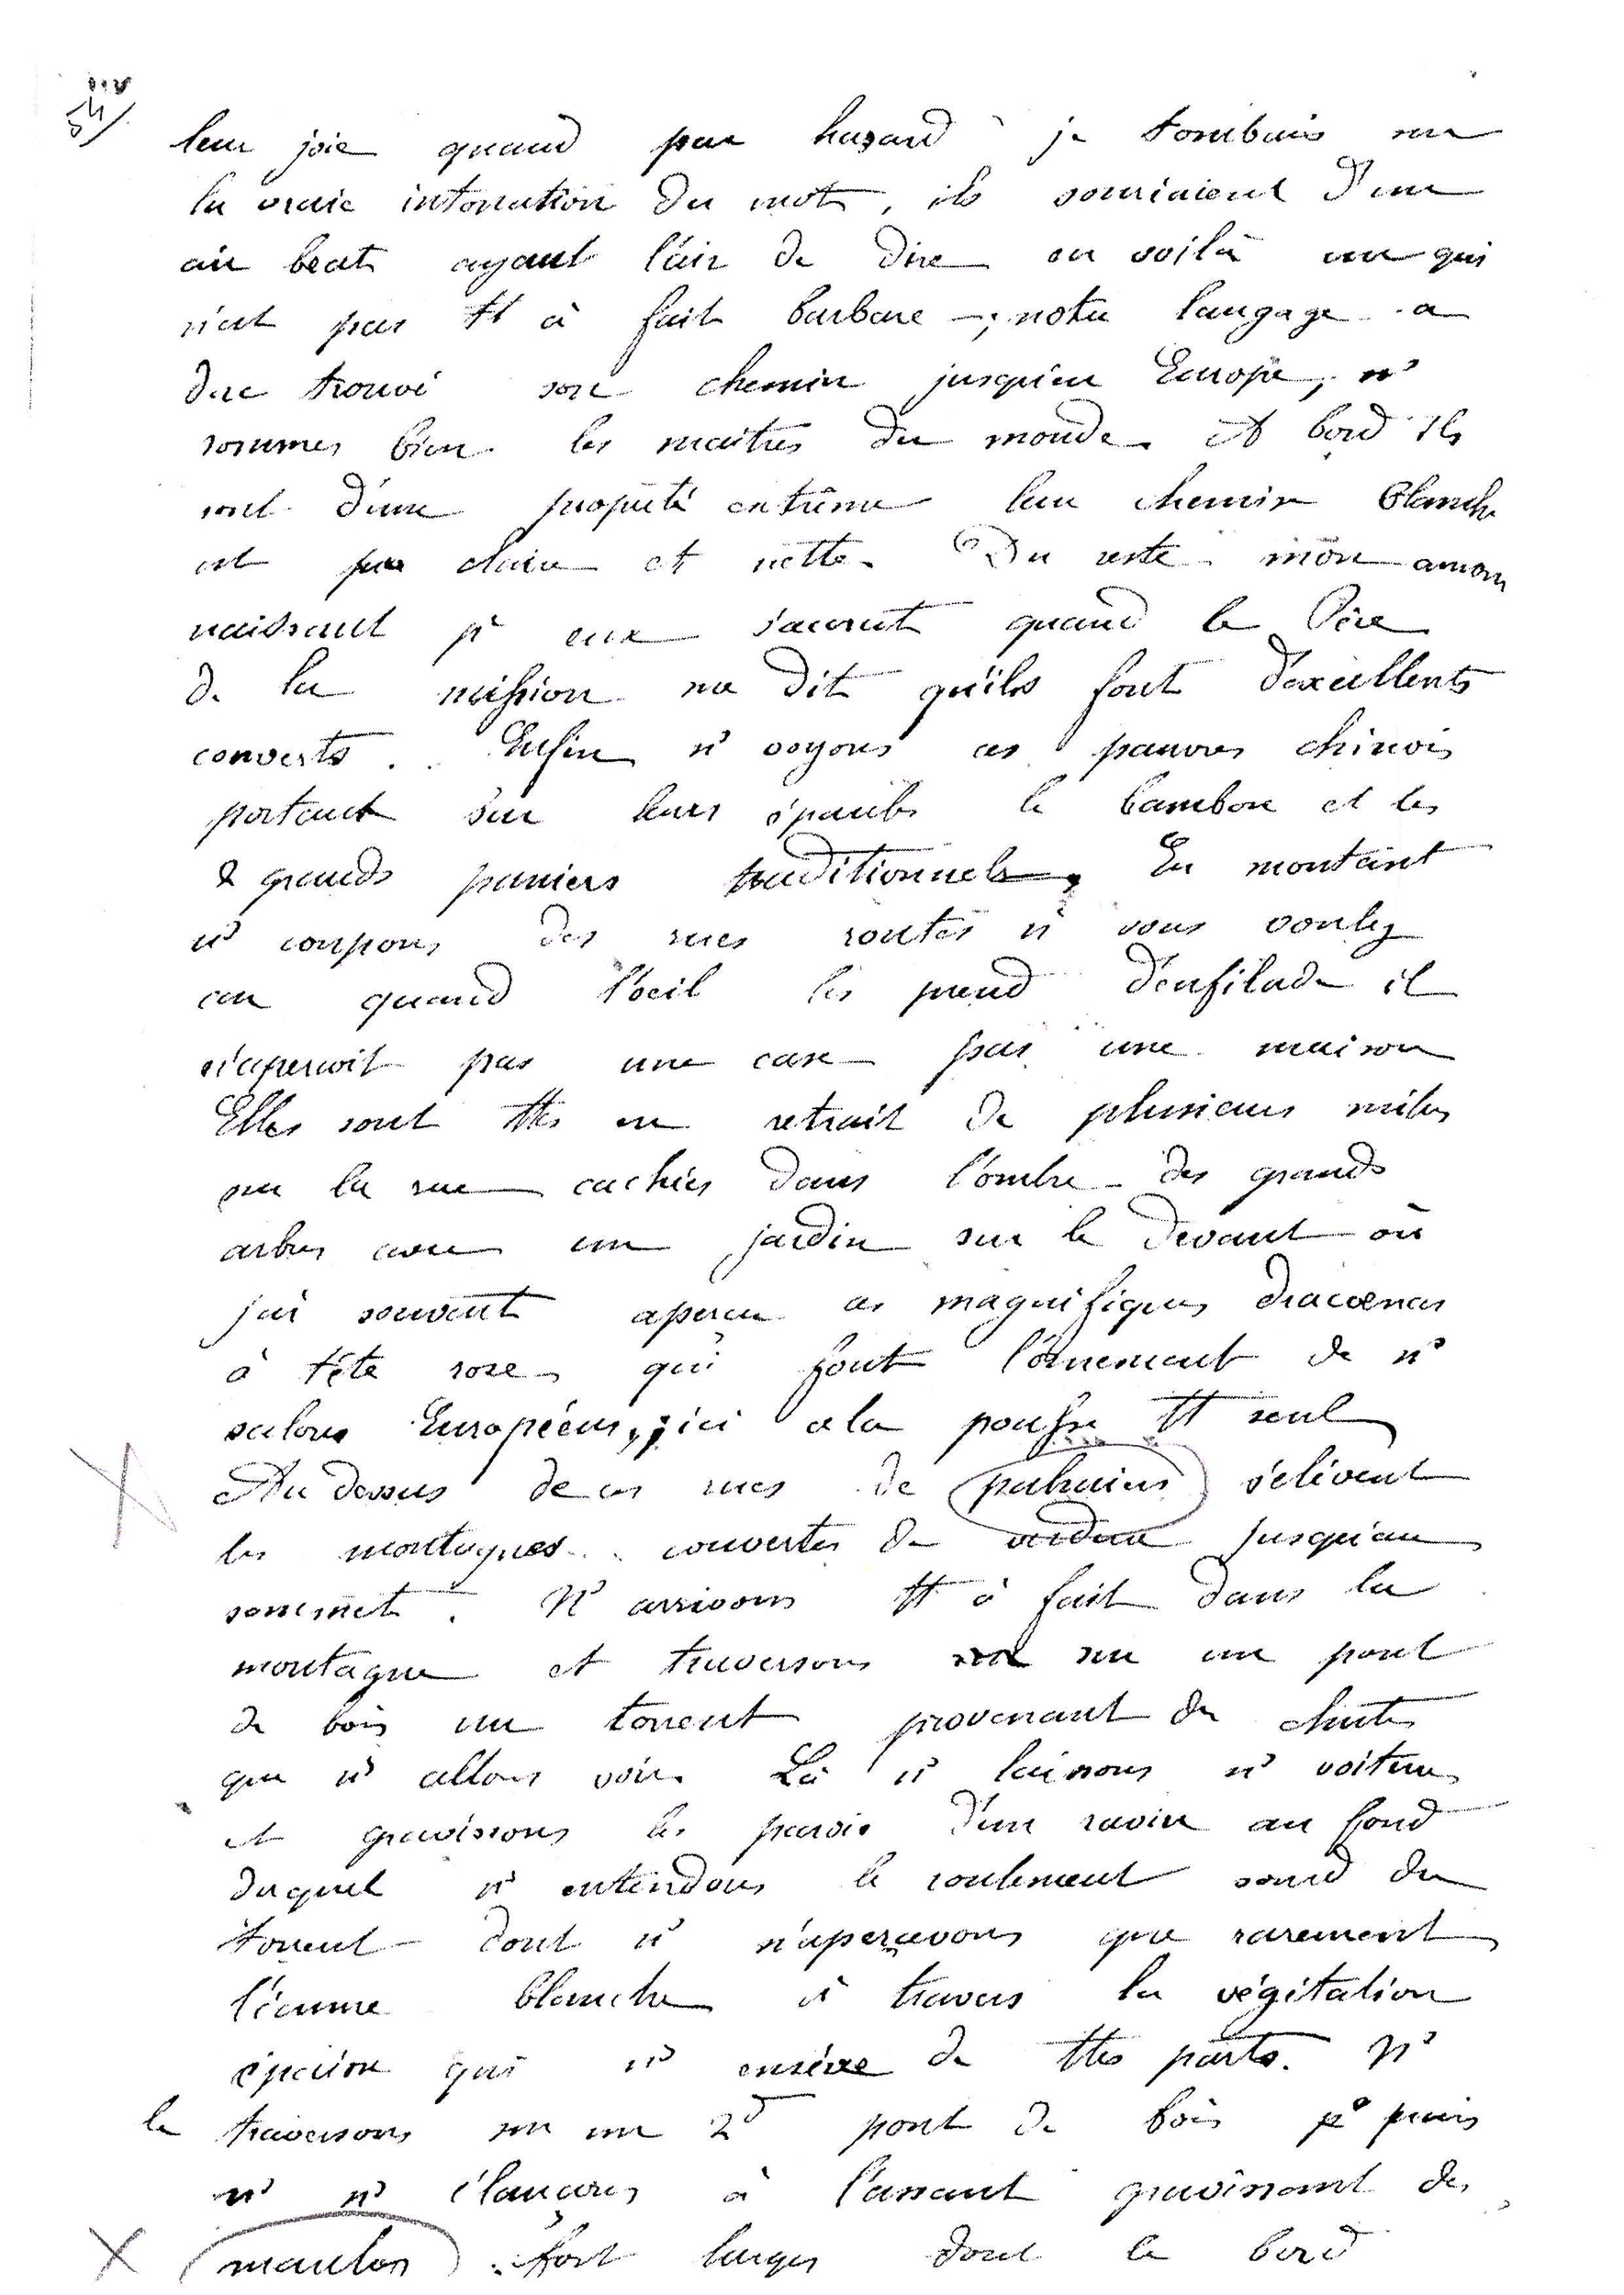 54/
leur joie quand par hazard je tombais sur
la vraie intonation du mot, ils souriaient d'un
air beat ayant l'air de dire en voilà un qui
n'est pas tt à fait barbare —; notre langage a
donc trouvé son chemin jusqu'en Europe, ns
sommes bien les maitres du monde. A bord ils
sont d'une propreté extrême leur chemise blanche
est claire et nette. Du reste mon amour
naissant pr eux s'accrut quand le Père
de la mission me dit qu'ils font d'excellents
converts. Enfin ns voyons ces pauvres chinois
portant sur leurs épaules le bambou et les
2 grands paniers traditionnels. En montant
ns coupons des rues routes si vous voulez
car quand l'oeil les prend d'enfilade il
n'apercoit pas une case pas une maison
Elles sont ttes en retrait de plusieurs mètres
sur la rue cachées dans l'ombre des grands
arbres avec un jardin sur le devant où
j'ai souvent apercu ces magnifiques dracoenas
à tête rose qui font l'ornement de ns
salons Européens, ici cela pousse tt seul
Au dessus de ces rues de s'elèvent
les montagnes couvertes de verdure jusqu'au
sommet. Ns arrivons tt à fait dans la
montagne et traversons sur un pont
de bois un torrent provenant de chutes
que ns allons voir. Là ns laissons ns voitures
et gravissons les parois d'un ravin au fond
duquel ns entendons le roulement sourd du
torrent dont ns n'apercevons que rarement
l'écume blanche à travers la végétation
épaisse qui ns enserre de ttes parts. Ns
le traversons sur un 2d pont de bois puis
ns ns élançons à l'assaut gravissant des
fort larges dont le bord